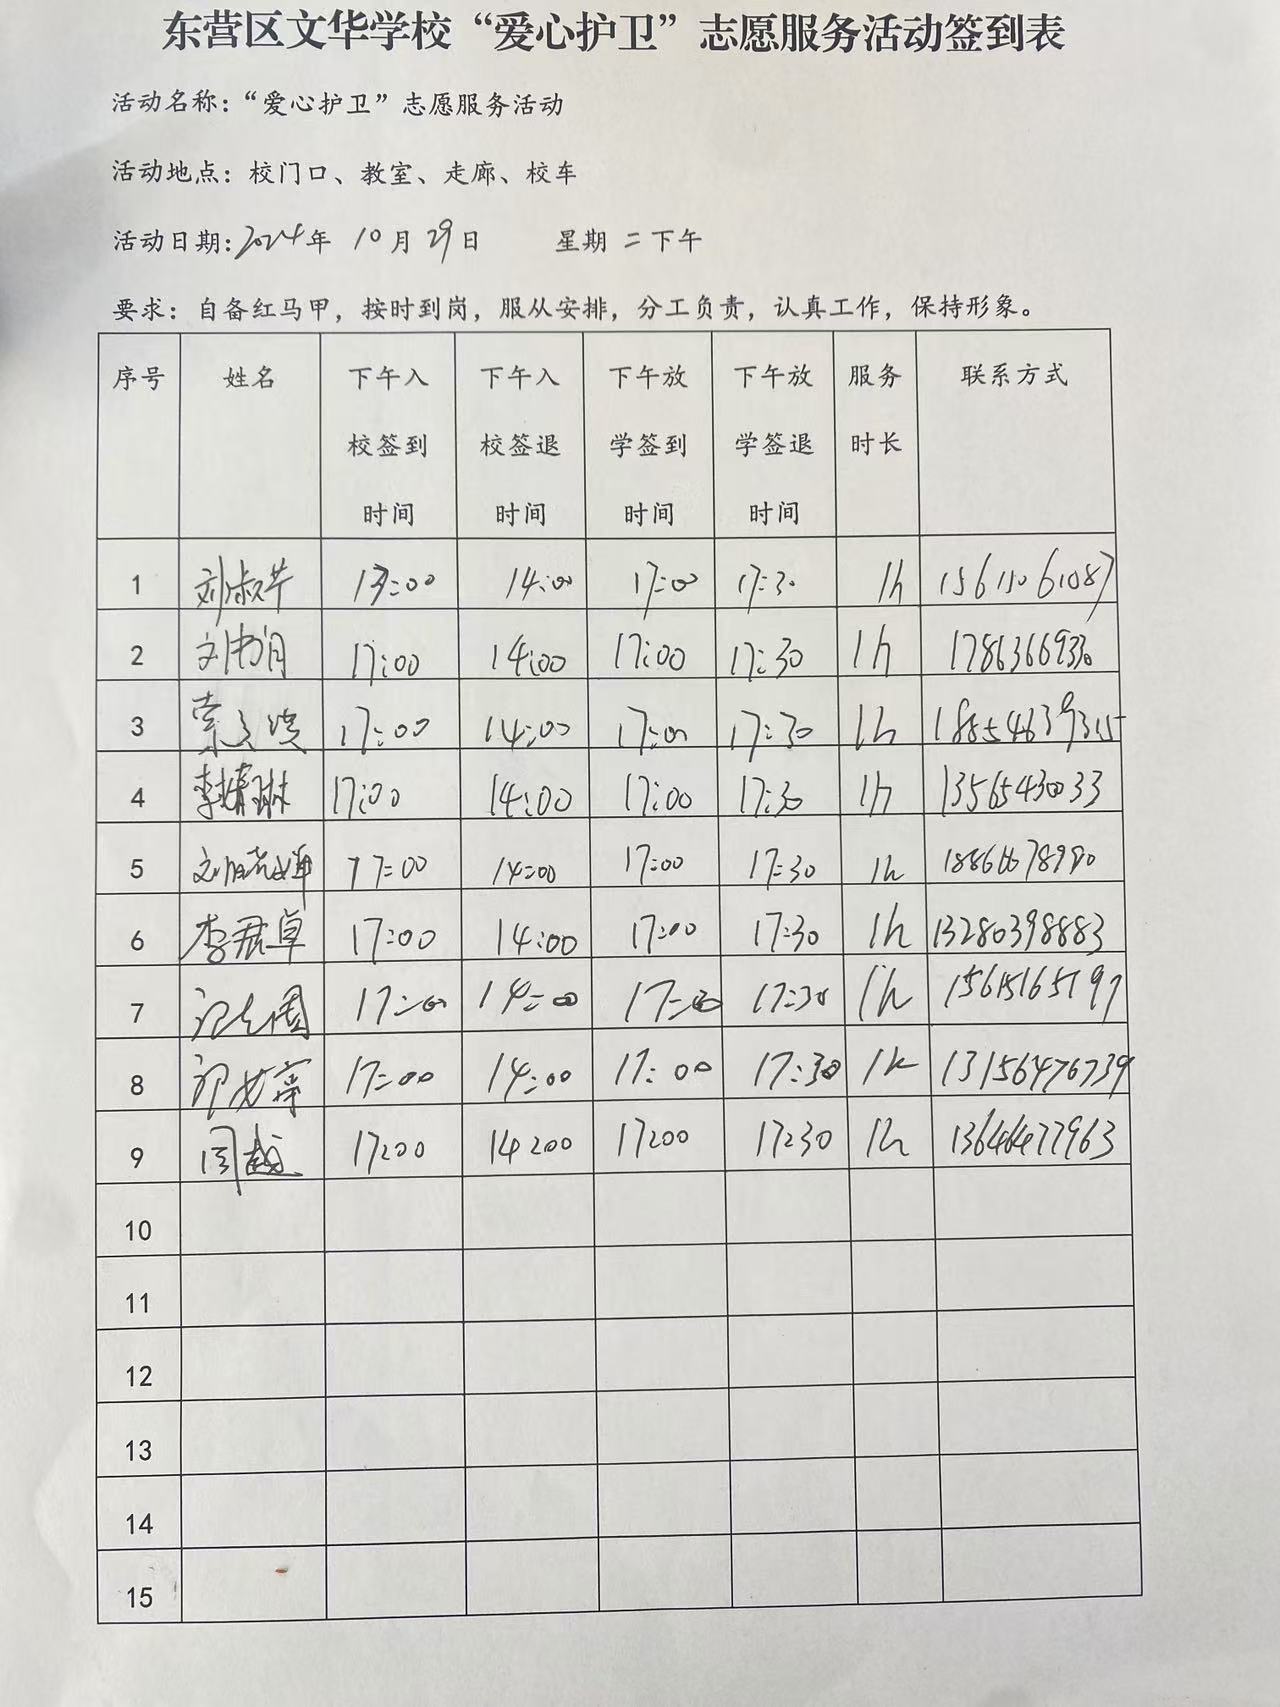 东营区文华学校“爱心护卫”志愿服务活动签到表
活动名称：“爱心护卫”志愿服务活动
活动地点：校门口、教室、走廊、校车
活动日期：2024年 10月29日 星期二下午
要求：自备红马甲，按时到岗，服从安排，分工负责，认真工作，保持形象。
序号 姓名 下午入校签到时间 下午入校签退时间 下午放学签到时间 下午放学签退时间 服务时长 联系方式
1 刘淑芹 13:00 14:00 17:00 17:30 1h
2 17:00 14:00 17:00 17:30 1h 17863669330
3 17:00 14:00 17:00 17:30 1h 18554639315
4 李婧琳 17:00 14:00 17:00 17:30 1h 13565430033
5 17:00 14:00 17:00 17:30 1h
6 李君卓 17:00 14:00 17:00 17:30 1h 13280398883
7 17:00 14:00 17:00 17:30 1h 15615165197
8 17:00 14:00 17:00 17:30 1h 13156476739
9 周越 17:00 14:00 17:00 17:30 1h 13646477963
10
11
12
13
14
15